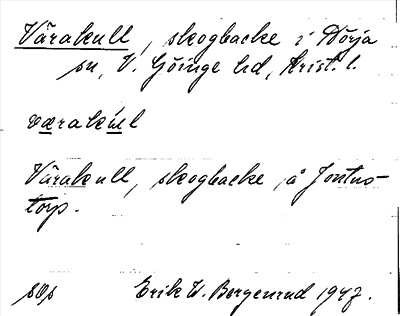 Värakull, skogbacke i Nörja
sn, V. Göinge hd, Krist. l.
værakul
Värakull, skogbacke å Jontus-
torp.
Erik W. Bergenrud 1947.